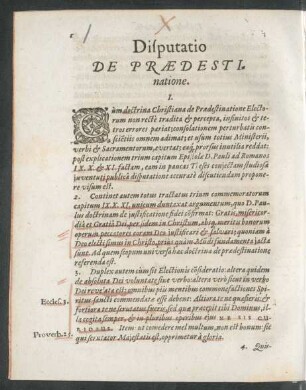 Disputatio
DE PRÆDESTI,
natione.
I.
Cùm doctrina Christiana de Prædestinatione Electo-
rum non rectè tradita & percepta, infinitos &
tetros errores pariat: consolationem perturbatis con-
scientiis omnem adimat: et usum totius Ministerii,
verbi & Sacramentorum, evertat, eaq́, prorsus inutilia reddat:
post explicationem trium capitum Epistolæ D. Pauli ad Romanos
IX. X. & XI. factam, eam in paucas Theses conjectam studiosæ
juventuti publicâ disputatione accuratè discutiendam propone-
re visum est.
2. Continet autem totus tractatus trium commemoratorum
capitum IX. X. XI. unicum duntaxat argumentum, quo D. Pau-
lus doctrinam de justificatione fidei cõfirmat: Gratia, misericor-
dia et Gratia Dei, per fidem in Christum, absq́, meritis bonorum
operum peccatores coram Deo justificari & salvari: quoniam à
Deo electi simus in Christo, prius quàm Mundi fundamenta jacta
sint. Ad quem scopum universa hæc doctrina de prædestinatione
referenda est.
3. Duplex autem cùm sit Electionis cõsideratio: altera quidem
de absoluta Dei voluntate sine verbo: altera verò eiusdem in verbo
Dei revelata est: omnibus piis mentibus commonefactionem Spi-
Eccles. 3. ritus sancti commendata esse debent: Altiora te ne quæsieris, &
fortiora te ne scrutatus fueris, sed quæ præcepit tibi Dominus, il-
la cogita semper, & in pluribus operibus eius NE SIS CU-
RIOSUS. Item: ut comedere mel multum, non est bonum: sic
Proverb. 25. qui scrutatur Majestatem, opprimetur à gloria.
4. Quis-